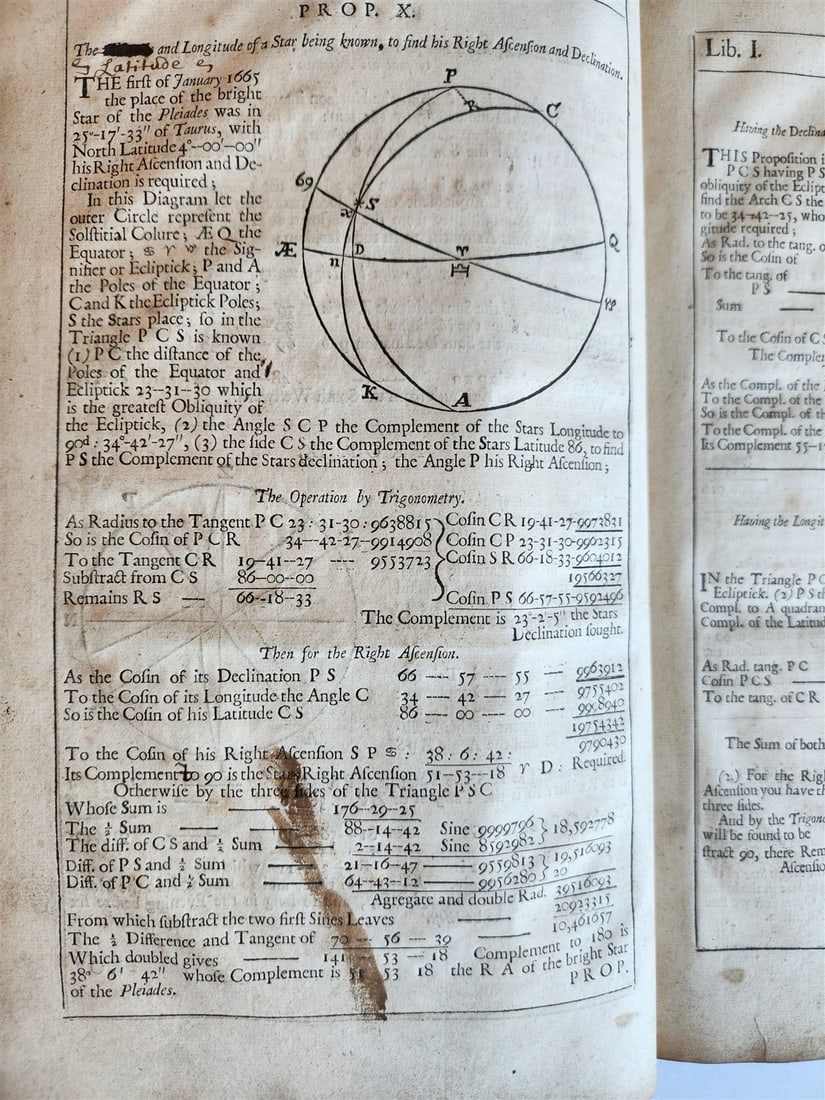 PROP. X.
The and Longitude of a Star being known, to find his Right Ascension and Declination.
Latitude
THE first of January 1665
the place of the bright
Star of the Pleiades was in
25°-17'-33" of Taurus, with
North Latitude 4°--00'--00"
his Right Ascension and De-
clination is required;
In this Diagram let the
outer Circle represent the
Solstitial Colure; Æ Q the
Equator; ♋ ♈ ♑ the Sig-
nifier or Ecliptick; P and A
the Poles of the Equator;
C and K the Ecliptick Poles;
S the Stars place; so in the
Triangle P C S is known
(1) P C the distance of the
Poles of the Equator and
Ecliptick 23--31--30 which
is the greatest Obliquity of
the Ecliptick, (2) the Angle S C P the Complement of the Stars Longitude to
90d: 34°-42'-27", (3) the side C S the Complement of the Stars Latitude 86, to find
P S the Complement of the Stars declination; the Angle P his Right Ascension;
P
R
C
69
S
Æ
n
D
♈
♎
Q
♑
K
A
The Operation by Trigonometry.
As Radius to the Tangent P C 23:31-30:9638815 Cosin C R 19-41-27-9973821
So is the Cosin of P C R 34--42-27--9914908 Cosin C P 23-31-30-9962315
To the Tangent C R 19--41--27 ---- 9553723 Cosin S R 66-18-33-9604012
Substract from C S 86--00--00 19566327
Remains R S — 66--18--33 Cosin P S 66-57-55-9592496
The Complement is 23°-2'-5" the Stars
Declination sought.
Then for the Right Ascension.
As the Cosin of its Declination P S 66 --- 57 ---- 55 — 9963912
To the Cosin of its Longitude the Angle C 34 ---- 42 ---- 27 — 9755402
So is the Cosin of his Latitude C S 86 ---- 00 ---- 00 — 9998940
19754342
9790430
To the Cosin of his Right Ascension S P ♋: 38:6:42:
Its Complement to 90 is the Stars Right Ascension 51--53---18 ♈ D: Required.
Otherwise by the three sides of the Triangle P S C
Whose Sum is — 176--29--25
The ½ Sum — — 88--14--42 Sine 9999796 } 18,592778
The diff. of C S and ½ Sum — 2--14--42 Sine 8592982
Diff. of P S and ½ Sum — 21--16--47 — 9559813 } 19,516093
Diff. of P C and ½ Sum — 64--43--12 — 9956280 20
Agregate and double Rad. 39516093
20923315
From which substract the two first Sines Leaves — 10,461657
The ½ Difference and Tangent of 70 -- 56 -- 39
Which doubled gives — 141 53 -- 18 Complement to 180 is
38° 6' 42" whose Complement is 51 53 18 the R A of the bright Star
of the Pleiades.
PROP.
Lib. I.
Having the Declina
THIS Proposition i
P C S having P S
obliquity of the Eclipt
find the Arch C S the
to be 34--42--25, who
gitude required;
As Rad. to the tang. o
So is the Cosin of
To the tang. of
P S —
Sum —
To the Cosin of C S
The Complem
As the Compl. of the
To the Compl. of the
So is the Compl. of th
To the Compl. of the
Its Complement 55--1
Having the Longit
IN the Triangle P C
Ecliptick. (2) P S th
Compl. to A quadran
Compl. of the Latitud
As Rad. tang. P C
Cosin P C S —
To the tang. of C R
The Sum of both
(2.) For the Righ
Ascension you have th
three sides.
And by the Trigono
will be found to be
stract 90, there Rem
Ascensio